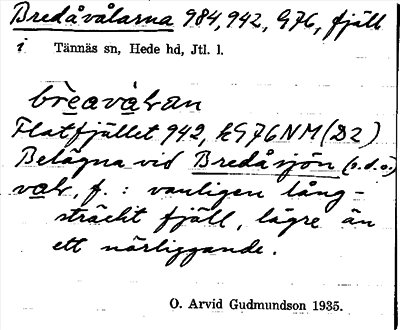 Bredåvålarna 984,942, G76, fjäll
i Tännäs sn, Hede hd, Jtl. l.
brèavàlran
Flatfjället 942, k G76 NM (D2)
Belägna vid Bredåsjön (o.d.o)
valr, f. : vanligen lång-
sträckt fjäll, lägre än
ett närliggande.
O. Arvid Gudmundson 1935.